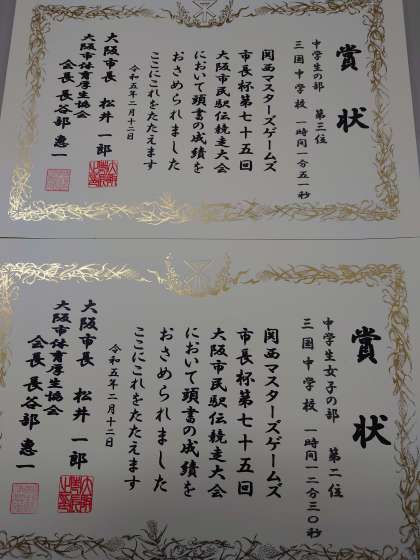 賞状
中学生の部 第三位
三国中学校 一時間一分五一秒
関西マスターズゲームズ
市長杯第七十五回
大阪市民駅伝競走大会
において頭書の成績を
おさめられました
ここにこれをたたえます
令和五年二月十二日
大阪市長 松井一郎
大阪市体育厚生協会
会長 長谷部惠一
賞状
中学生女子の部 第二位
三国中学校 一時間一二分三〇秒
関西マスターズゲームズ
市長杯第七十五回
大阪市民駅伝競走大会
において頭書の成績を
おさめられました
ここにこれをたたえます
令和五年二月十二日
大阪市長 松井一郎
大阪市体育厚生協会
会長 長谷部惠一